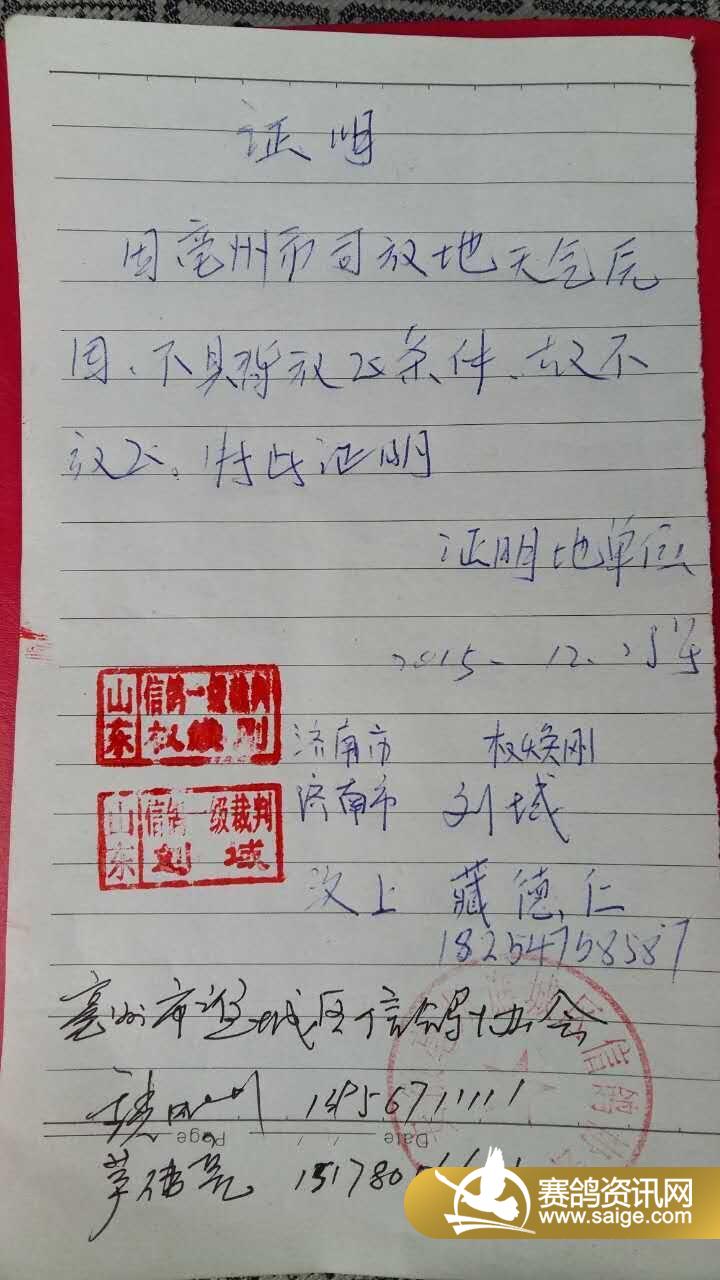 证明
因亳州市司放地天气原
因、不具备放飞条件、故不
放飞。特此证明
证明地单位
2015. 12.
山东 信鸽一级裁判 权焕刚
济南市 权焕刚
山东 信鸽一级裁判 刘域
济南市 刘域
汶上 藏德仁
18254758587
亳州市谯城区信鸽协会
信鸽协
Date
Page
赛鸽资讯网
www.saige.com